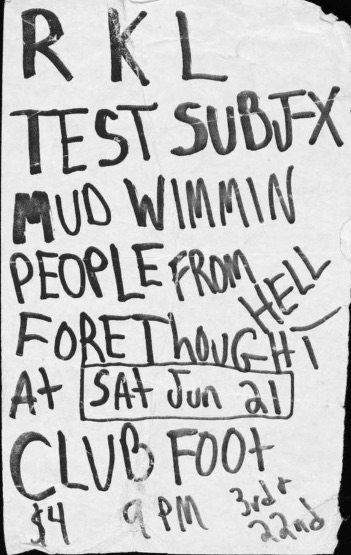 RKL
TEST SUBJ-X
MUD WIMMIN
PEOPLE FROM HELL
FORETHOUGHT
At SAt Jun 21
CLUB FOOt
$4 9 PM 3rd + 22nd